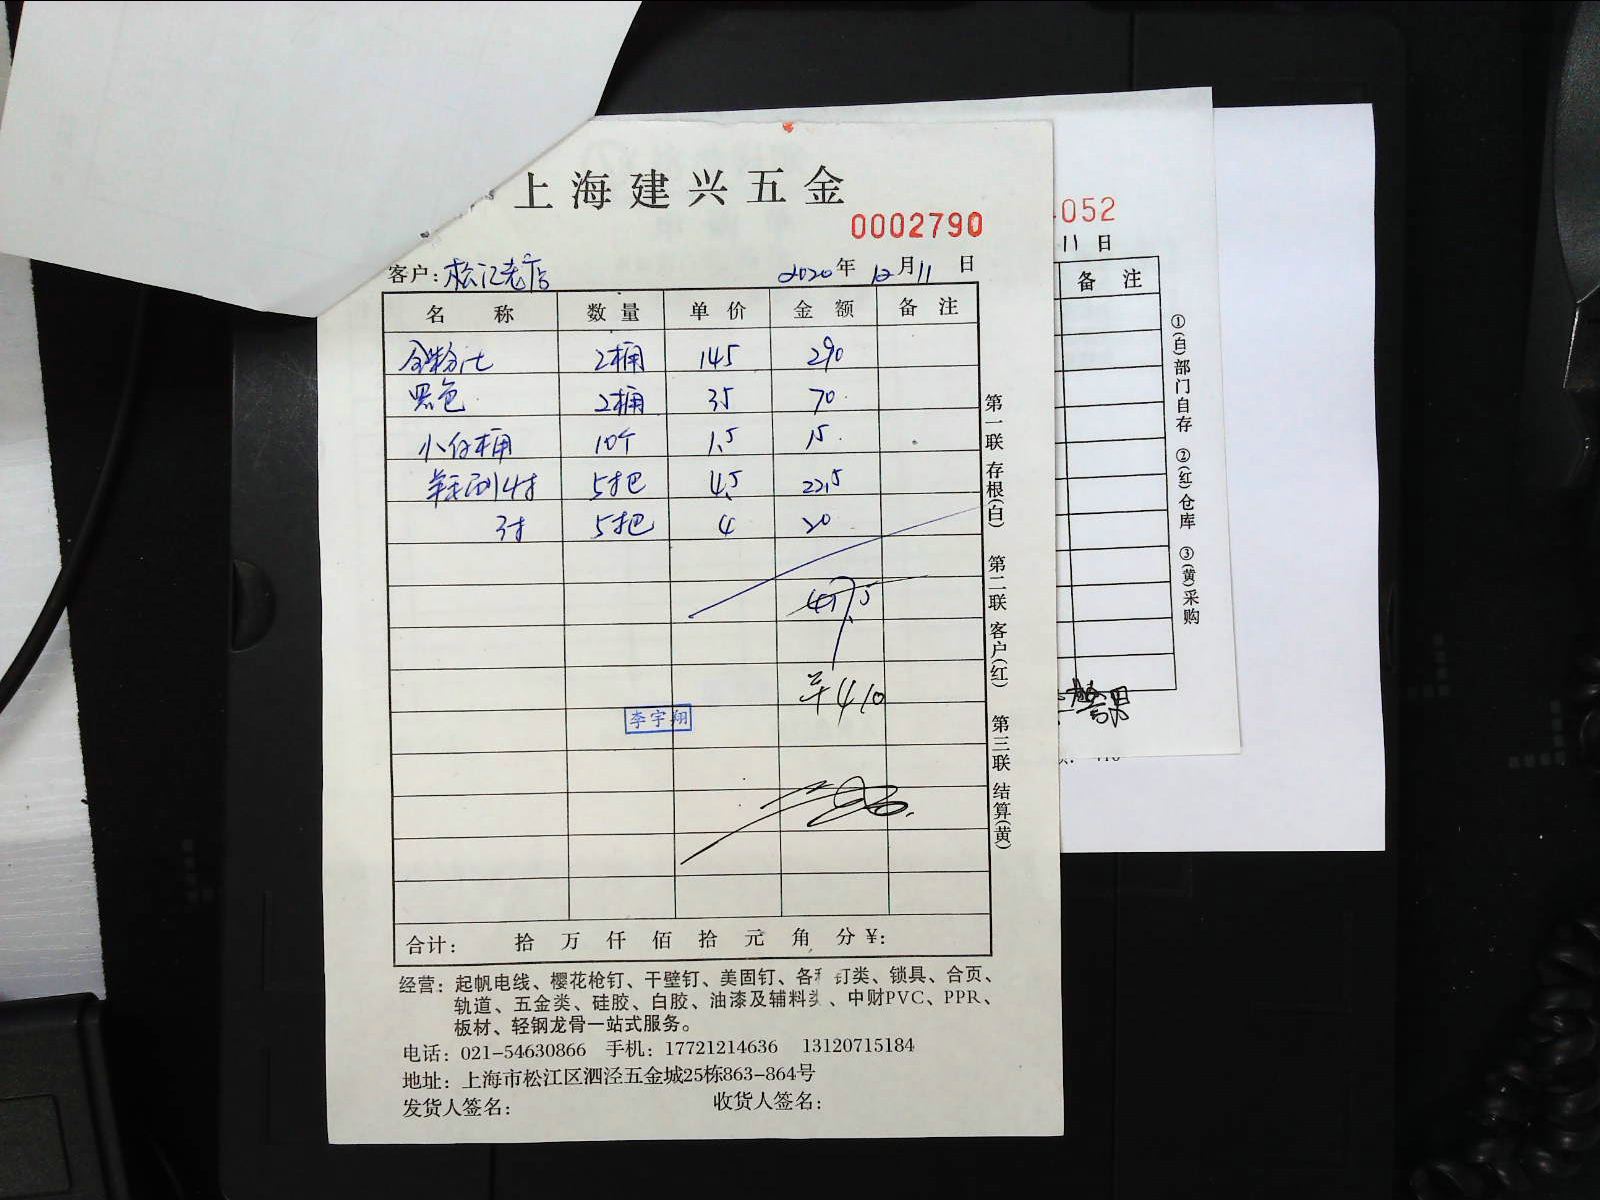 上海建兴五金
0002790
客户:松江老店 2020年12月11日
名 称 数量 单价 金额 备注
金粉漆 2桶 145 290
黑色 2桶 35 70
小白桶 10个 1.5 15
羊毛刷4寸 5把 4.5 22.5
3寸 5把 4 20
417.5
平410
李宇翔
合计: 拾 万 仟 佰 拾 元 角 分 ¥:
第一联 存根(白) 第二联 客户(红) 第三联 结算(黄)
经营:起帆电线、樱花枪钉、干壁钉、美固钉、各种钉类、锁具、合页、
轨道、五金类、硅胶、白胶、油漆及辅料类、中财PVC、PPR、
板材、轻钢龙骨一站式服务。
电话:021-54630866 手机:17721214636 13120715184
地址:上海市松江区泗泾五金城25栋863-864号
发货人签名: 收货人签名:
052
11日
备 注
①(白)部门自存 ②(红)仓库 ③(黄)采购